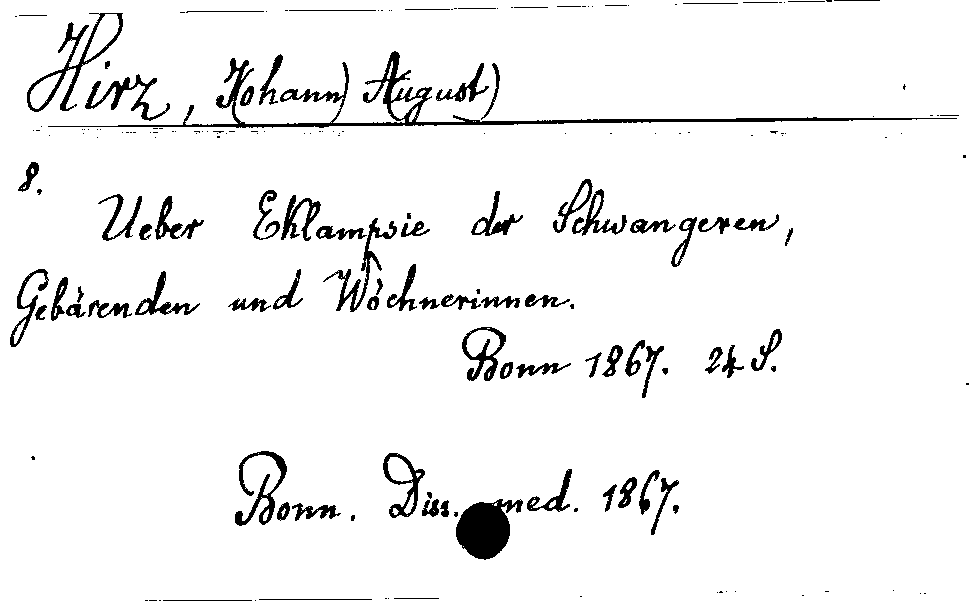 Hirz, J(ohann) A(ugust)
8.
Ueber Eklampsie der Schwangeren,
Gebärenden und Wöchnerinnen.
Bonn 1867. 24 S.
Bonn. Diss. med. 1867.